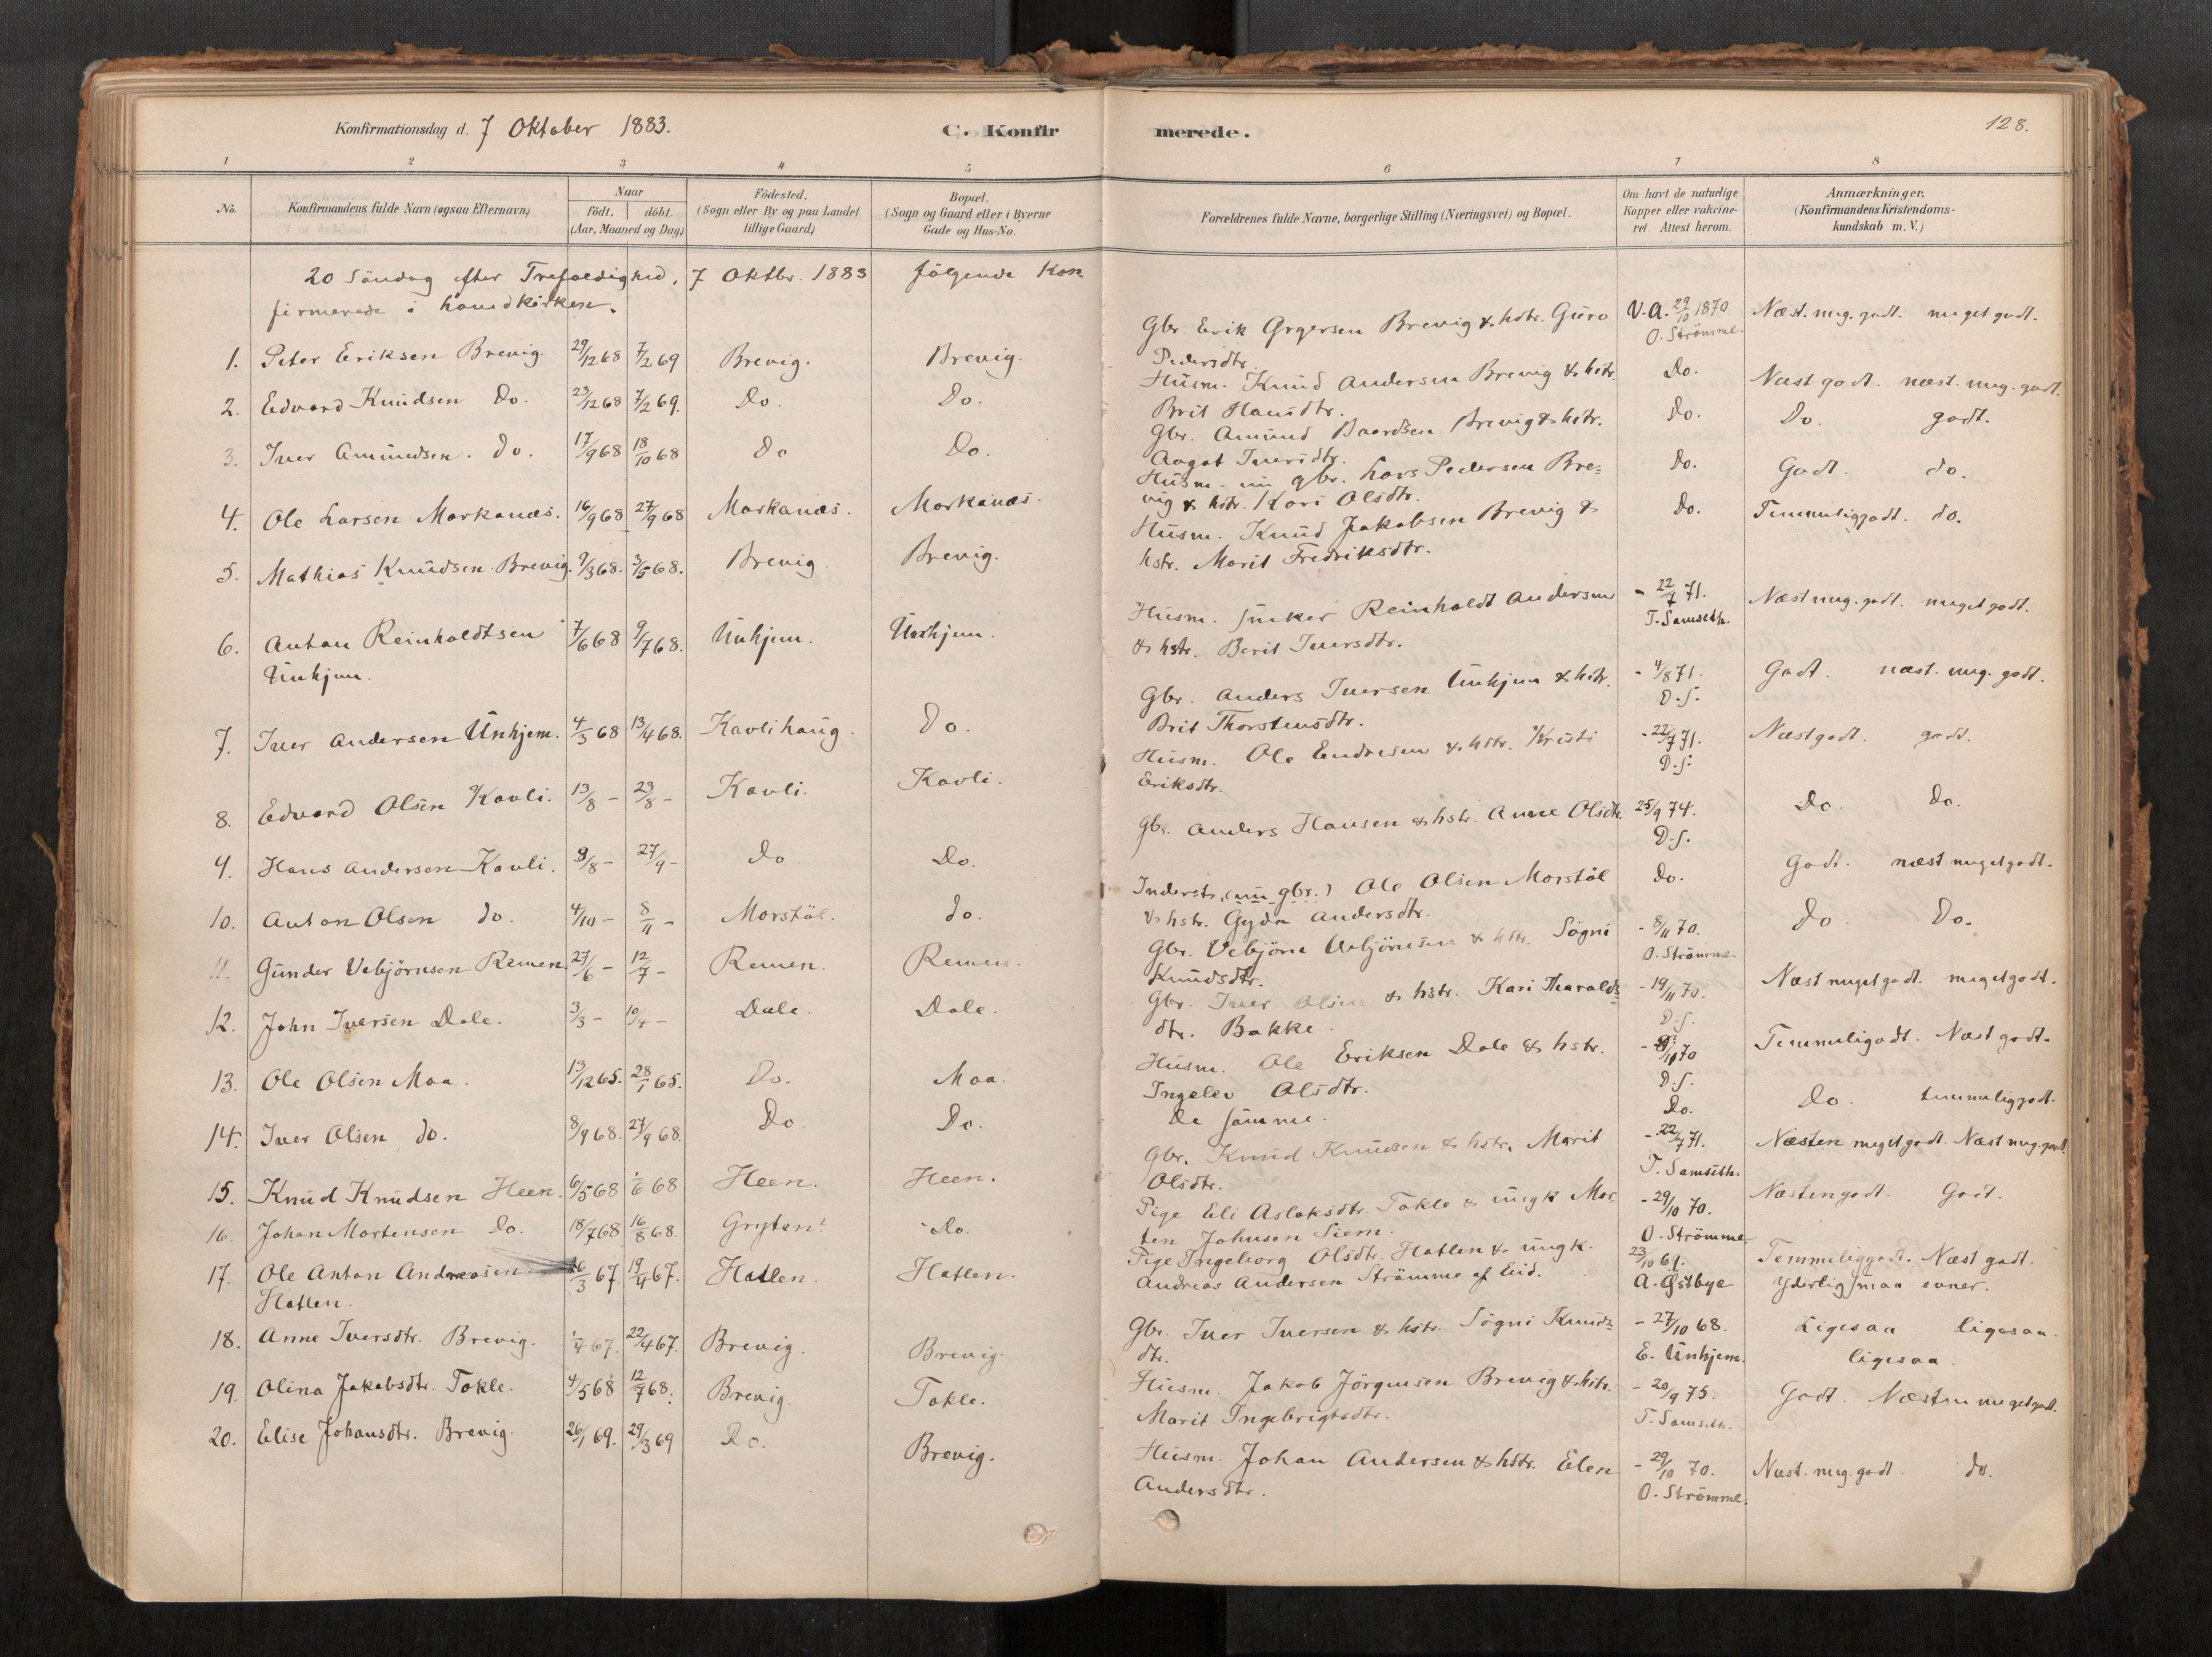 Konfirmationsdag d. 7 Oktober 1883.
C. Konfir
merede.
128.
1 2 3 4 5 6 7 8
No.
Konfirmandens fulde Navn (ogsaa Efternavn)
Naar
födt. döbt.
(Aar, Maaned og Dag)
Födested.
(Sogn eller By og paa Landet
tillige Gaard)
Bopæl.
(Sogn og Gaard eller i Byerne
Gade og Hus-No.
Forældrenes fulde Navne, borgerlige Stilling (Næringsvei) og Bopæl.
Om havt de naturlige
Kopper eller vakcine-
ret. Attest herom.
Anmærkninger.
(Konfirmandens Kristendoms-
kundskab m. V.)
20 Söndag efter Trefoldighed, 7 Oktbr. 1883 fölgende Kon-
firmerede i Hovedkirken.
1. Peter Eriksen Brevig. 29/12 68 7/2 69 Brevig. Brevig. Gbr. Erik Brevig & hstr. Guro V.A. 29/10 1870 Næst. meg. godt. meget godt.
Pedersdtr. O. Strömme.
2. Edvard Knudsen Do. 23/12 68 7/2 69. Do. Do. Husm. Knud Andersen Brevig & hstr. Do. Næst godt. næst. meg. godt.
Brit Hansdtr.
3. Iver Amundsen. do. 17/9 68 18/10 68 Do Do. Gbr. Amund Baardsen Brevig & hstr. Do. Do. godt.
Aagot Iversdtr.
4. Ole Larsen Markanæs. 16/9 68 27/9 68 Markanæs. Markanæs. Husm. nu gbr. Lars Pedersen Bre= Do. Godt. do.
vig & hstr. Kari Olsdtr.
5. Mathias Knudsen Brevig. 9/3 68. 3/5 68. Brevig. Brevig. Husm. Knud Jakobsen Brevig & Do. Temmeliggodt. do.
hstr. Marit Fredriksdtr.
6. Anton Reinholdtsen 7/6 68 9/7 68. Unhjem. Unhjem. Husm. Reinholdt Andersen - 22/7 71. Næst meg. godt. meget godt.
Unhjem. & hstr. Berit Iversdtr. T. Samseth.
7. Iver Andersen Unhjem. 4/3 68 13/4 68. Kavlihaug. Do. Gbr. Anders Iversen Unhjem & hstr. - 4/8 71. Godt. næst. meg. godt.
Brit Thorstensdtr. D.S.
8. Edvard Olsen Kavli. 13/8 - 23/8 - Kavli. Kavli. Husm. Ole Endresen & hstr. Kristi - 22/7 71. Næstgodt. godt.
Eriksdtr. D.S.
9. Hans Andersen Kavli. 9/8 - 27/9 - Do Do. Gbr. Anders Hansen & hstr. Anne Olsdtr. 25/9 74. Do. Do.
D.S.
10. Anton Olsen do. 4/10 - 8/11 - Morstöl. do. Inderst, (nu gbr.) Ole Olsen Morstöl Do. Godt. næst megetgodt.
& hstr. Gyda Andersdtr.
11. Gunder Vebjörnsen Remen. 27/6 - 12/7 - Remen. Remen. Gbr. Vebjörn Vebjörnsen & hstr. Sögni - 8/11 70. Do Do.
Knudsdtr. O. Strömme.
12. John Iversen Dale. 3/3 - 10/4 - Dale. Dale. Gbr. Iver Olsen & hstr. Kari Tharalds= - 19/11 70. Næst megetgodt. megetgodt.
dtr. Bakke. D.S.
13. Ole Olsen Maa. 13/12 65. 28/1 65. Do. Maa. Husm. Ole Eriksen Dale & hstr. 70 Temmeligodt. Næst godt.
Ingelev Olsdtr. D.S.
14. Iver Olsen do. 8/9 68. 27/9 68. Do Do. De samme. Do. Do. temmeliggodt.
15. Knud Knudsen Heen. 6/5 68 1/6 68 Heen. Heen. Gbr. Knud Knudsen & hstr. Marit - 22/7 71. Næsten megetgodt. Næst meg. godt.
Olsdtr. T. Samseth.
16. Johan Mortensen Do. 18/7 68 16/8 68. Gryten. Do. Pige Eli Aslaksdtr. Tokle & ungk Mor - 29/10 70. Næstengodt. Godt.
ten Johnsen Siem. O. Strömme
17. Ole Anton Andreasen 26/3 67. 19/4 67. Hatlen. Hatlen. Pige Ingeborg Olsdtr. Hatlen & ungk. 23/10 69. Temmeliggodt. Næst godt.
Hatlen. Andreas Andersen Strömme af Eid. A. Östbye Yderlig smaa evner.
18. Anne Iversdtr. Brevig. 1/4 67. 22/4 67. Brevig. Brevig. Gbr. Iver Iversen & hstr. Sögni Knuds= - 27/10 68. Ligesaa ligesaa.
dtr. E. Unhjem. ligesaa.
19. Olina Jakobsdtr. Tokle. 4/5 68 12/7 68. Brevig. Tokle. Husm. Jakob Jörgensen Brevig & hstr. - 20/9 75. Godt. Næsten megetgodt.
Marit Ingebrigtsdtr. T. Samseth.
20. Elise Johansdtr. Brevig. 26/1 69. 29/3 69 Do. Brevig. Husm. Johan Andersen & hstr. Elen - 29/10 70. Næst. meg. godt. do.
Andersdtr. O. Strömme.